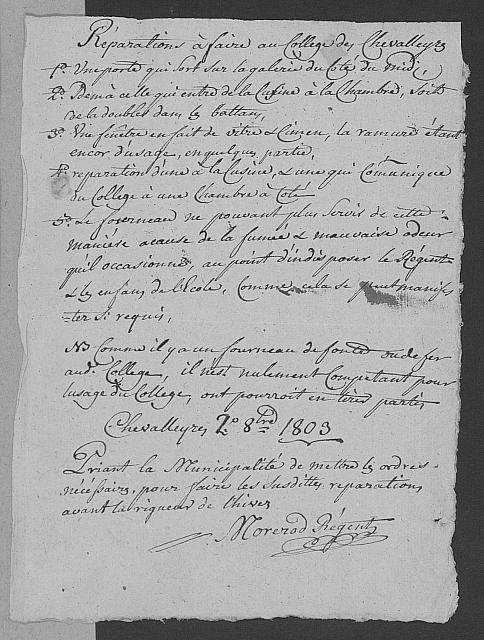 Réparations à faire au College des Chevalleyres
1º. Une porte qui sort sur la galerie du Coté du midi,
2º. Idem à celle qui entre de la Cusine à la Chambre, soit
de la doubler dans les battans,
3º. Une fenêtre en fait de vitre & Cimen, la ramure étant
encor d'usage, en quelque partie,
4º. reparation d'une à la Cusine, & une qui Comunique
du College à une Chambre à Coté
5º. Le fourneau ne pouvant plus servir de cette
maniére acause de la fumée & mauvaise odeur
qu'il occasionne, au point d'indisposer le Régent
& les enfans de l'Ecole, Comme cela se peut manifes
-ter si requis,
NB Comme il y a un fourneau de fonte ou de fer
au d. College, il n'est nulement Competant pour
l'usage du College, ont pourroit en tirer partis
Chevalleyres 2º 8bre 1803
Priant la Municipalité de mettre les ordres
nécéssaires pour faire les susdittes reparations
avant la rigueur de l'hiver
Morerod Régent